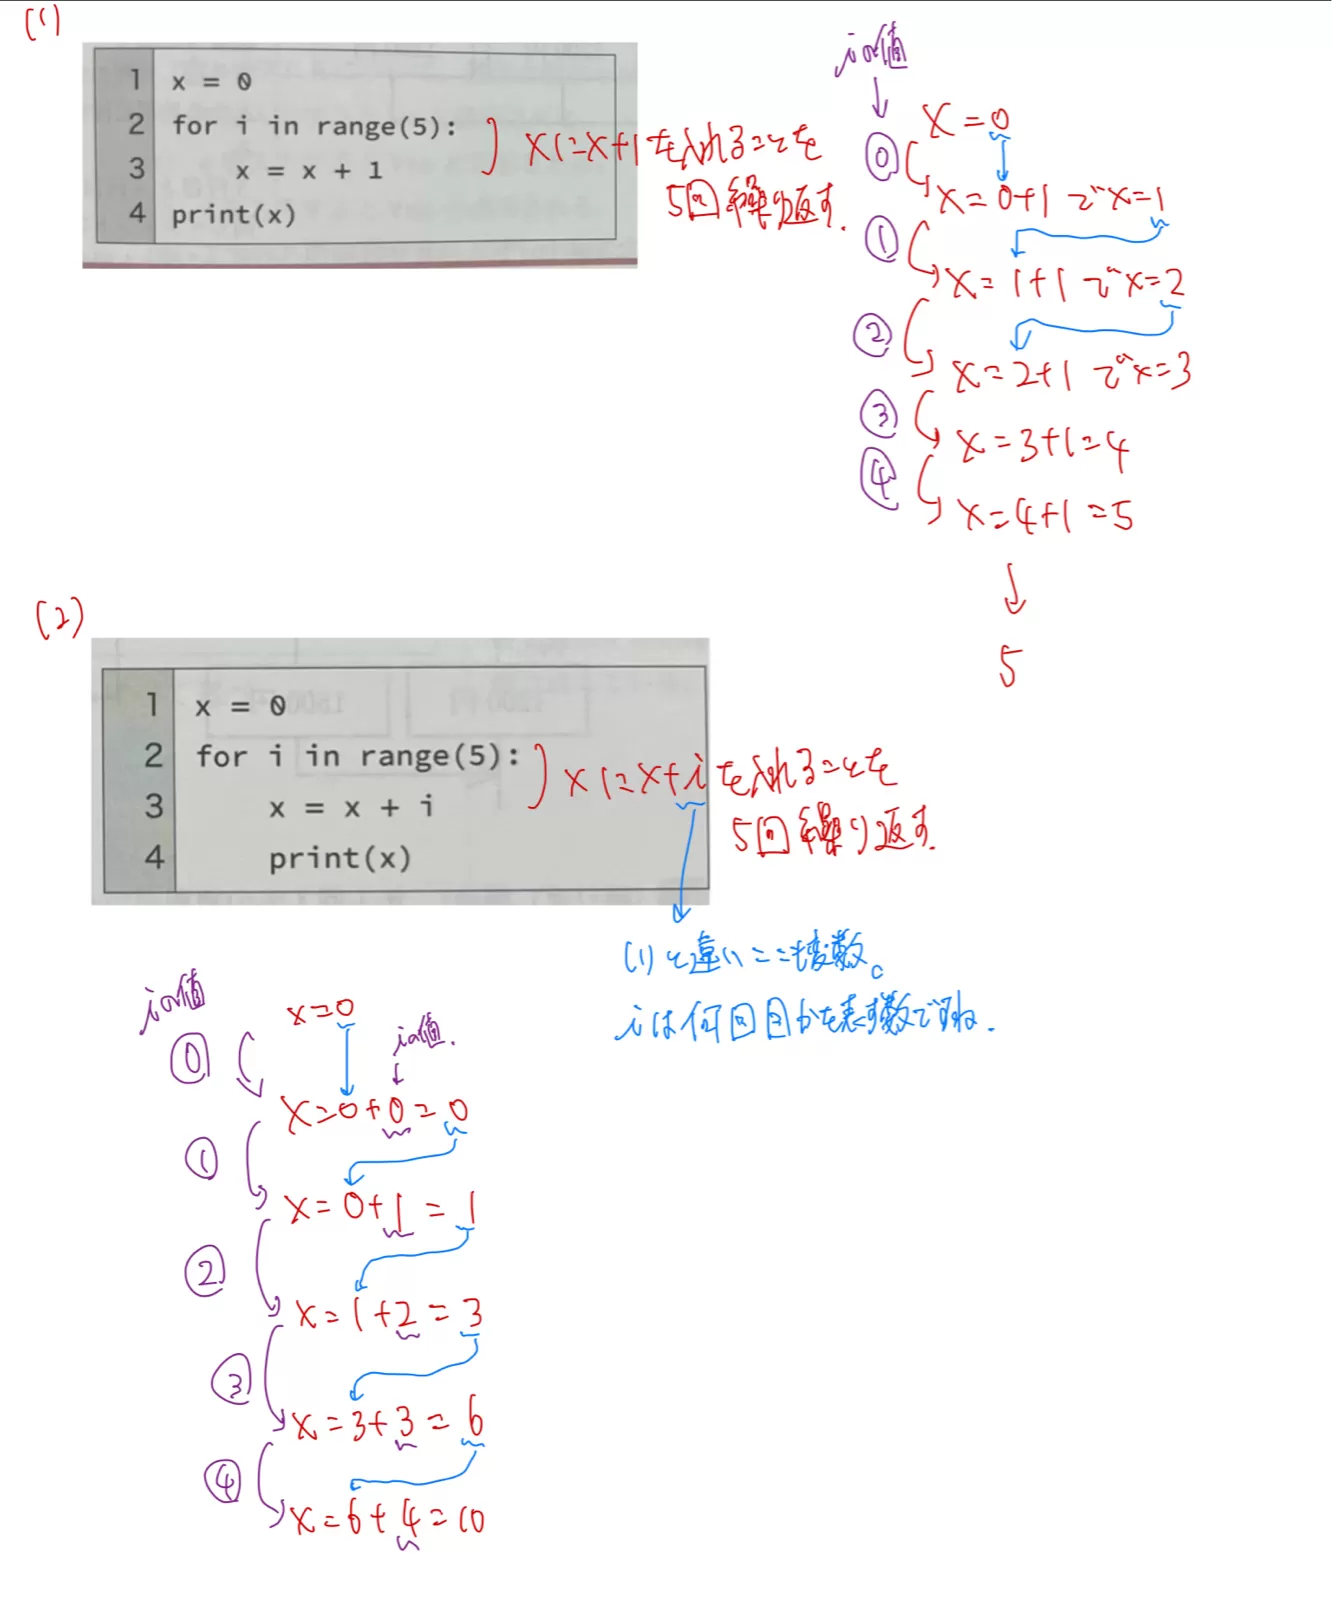 (1)
1 x = 0
2 for i in range(5):
3     x = x + 1
4 print(x)
xにx+1を入れることを
5回繰り返す.
iの値
x=0
⓪
x=0+1 でx=1
①
x=1+1 でx=2
②
x=2+1 でx=3
③
x=3+1=4
④
x=4+1=5
5
(2)
1 x = 0
2 for i in range(5):
3     x = x + i
4     print(x)
xにx+iを入れることを
5回繰り返す.
(1)と違いここも変数。
iは何回目かを表す数ですね.
iの値
x=0
iの値.
⓪
x=0+0=0
①
x=0+1=1
②
x=1+2=3
③
x=3+3=6
④
x=6+4=10